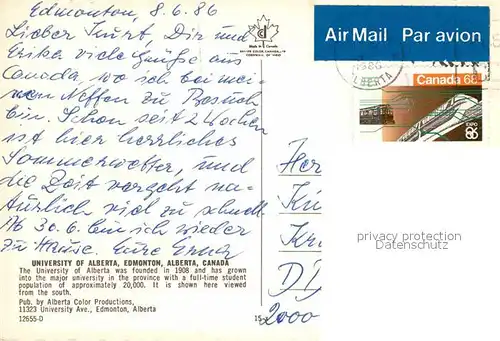 Edmonton, 8.6.86
Lieber Kurt, Dir und
Erika viele Grüße aus
Canada, wo ich bei mei-
nem Neffen zu Besuch
bin. Schon seit 2 Wochen
ist hier herrliches
Sommerwetter, und
die Zeit vergeht na-
türlich viel zu schnell.
Ab 30.6. bin ich wieder
zu Hause. Eure
Made in Canada
Air Mail Par avion
ALBERTA
Canada 68
EXPO
86
Her
Kü
Kr
D
2000
privacy protection
Datenschutz
UNIVERSITY OF ALBERTA, EDMONTON, ALBERTA, CANADA
The University of Alberta was founded in 1908 and has grown
into the major university in the province with a full-time student
population of approximately 20,000. It is shown here viewed
from the south.
Pub. by Alberta Color Productions,
11323 University Ave., Edmonton, Alberta
12655-D